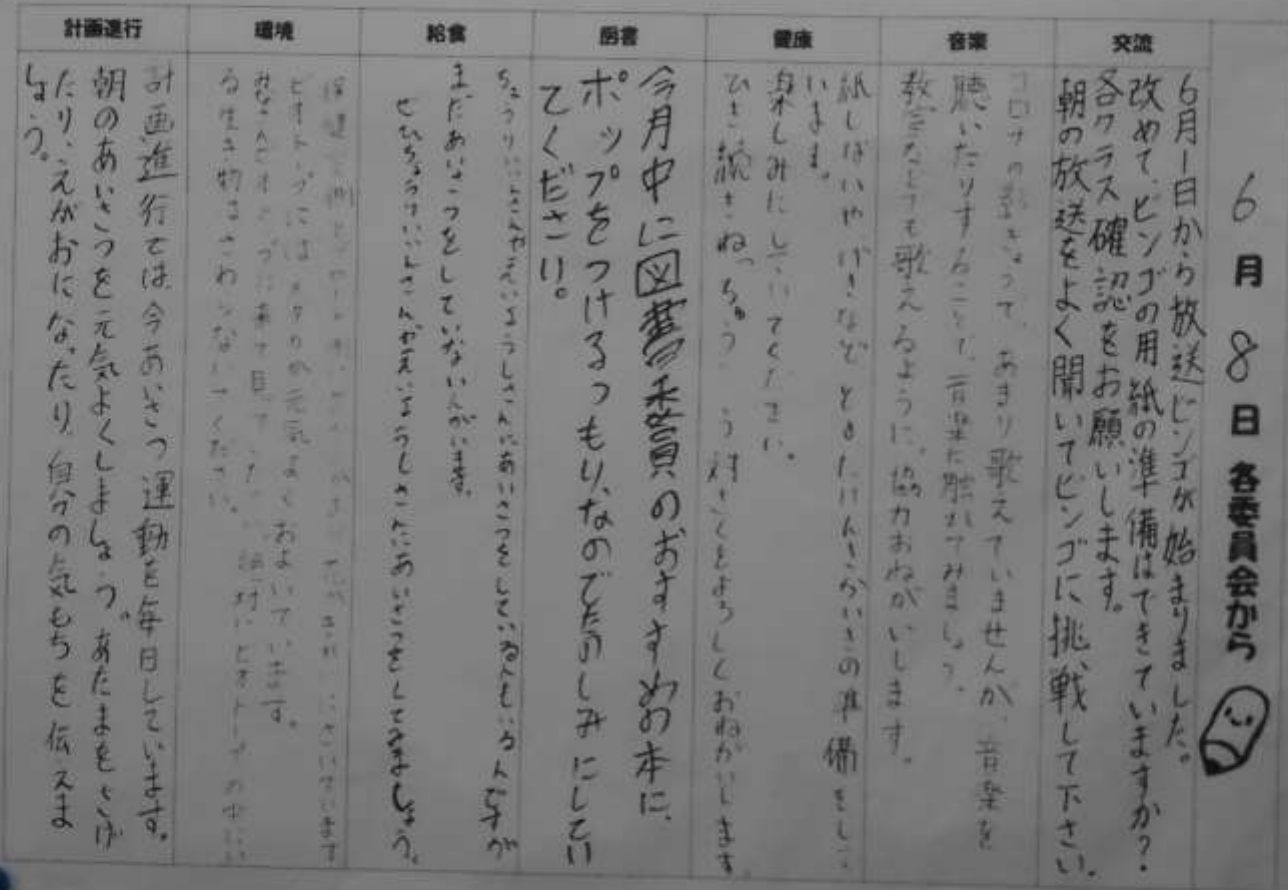 6月8日 各委員会から
交流
6月1日から放送ビンゴが始まりました。
改めて、ビンゴの用紙の準備はできていますか?
各クラス確認をお願いします。
朝の放送をよく聞いてビンゴに挑戦して下さい。
音楽
コロナの影きょうで、あまり歌えていませんが、音楽を
聴いたりすることで、音楽に触れてみましょう。
教室などでも歌えるように、協力おねがいします。
健康
紙しばいやげきなど
の準備をして
います。
楽しみにしていてください。
ひき続きねっちゅう
対さくをよろしくおねがいします。
図書
今月中に図書委員のおすすめの本に、
ポップをつけるつもりなのでたのしみにしてい
てください。
給食
ちょうりいんさんやえいようしさんにあいさつをしている人もいるんですが
まだあいさつをしていない人がいます。
ぜひちょうりいんさんやえいようしさんにあいさつをしてみましょう。
環境
ビオトープにはメダカが元気よくおよいでいます。
みなさんビオトープに来て見て
絶対にビオトープの中にい
る生き物はさわらないでください。
計画進行
計画進行では今あいさつ運動を毎日しています。
朝のあいさつを元気よくしましょう。あたまをさげ
たり、えがおになったり、自分の気もちを伝えま
しょう。